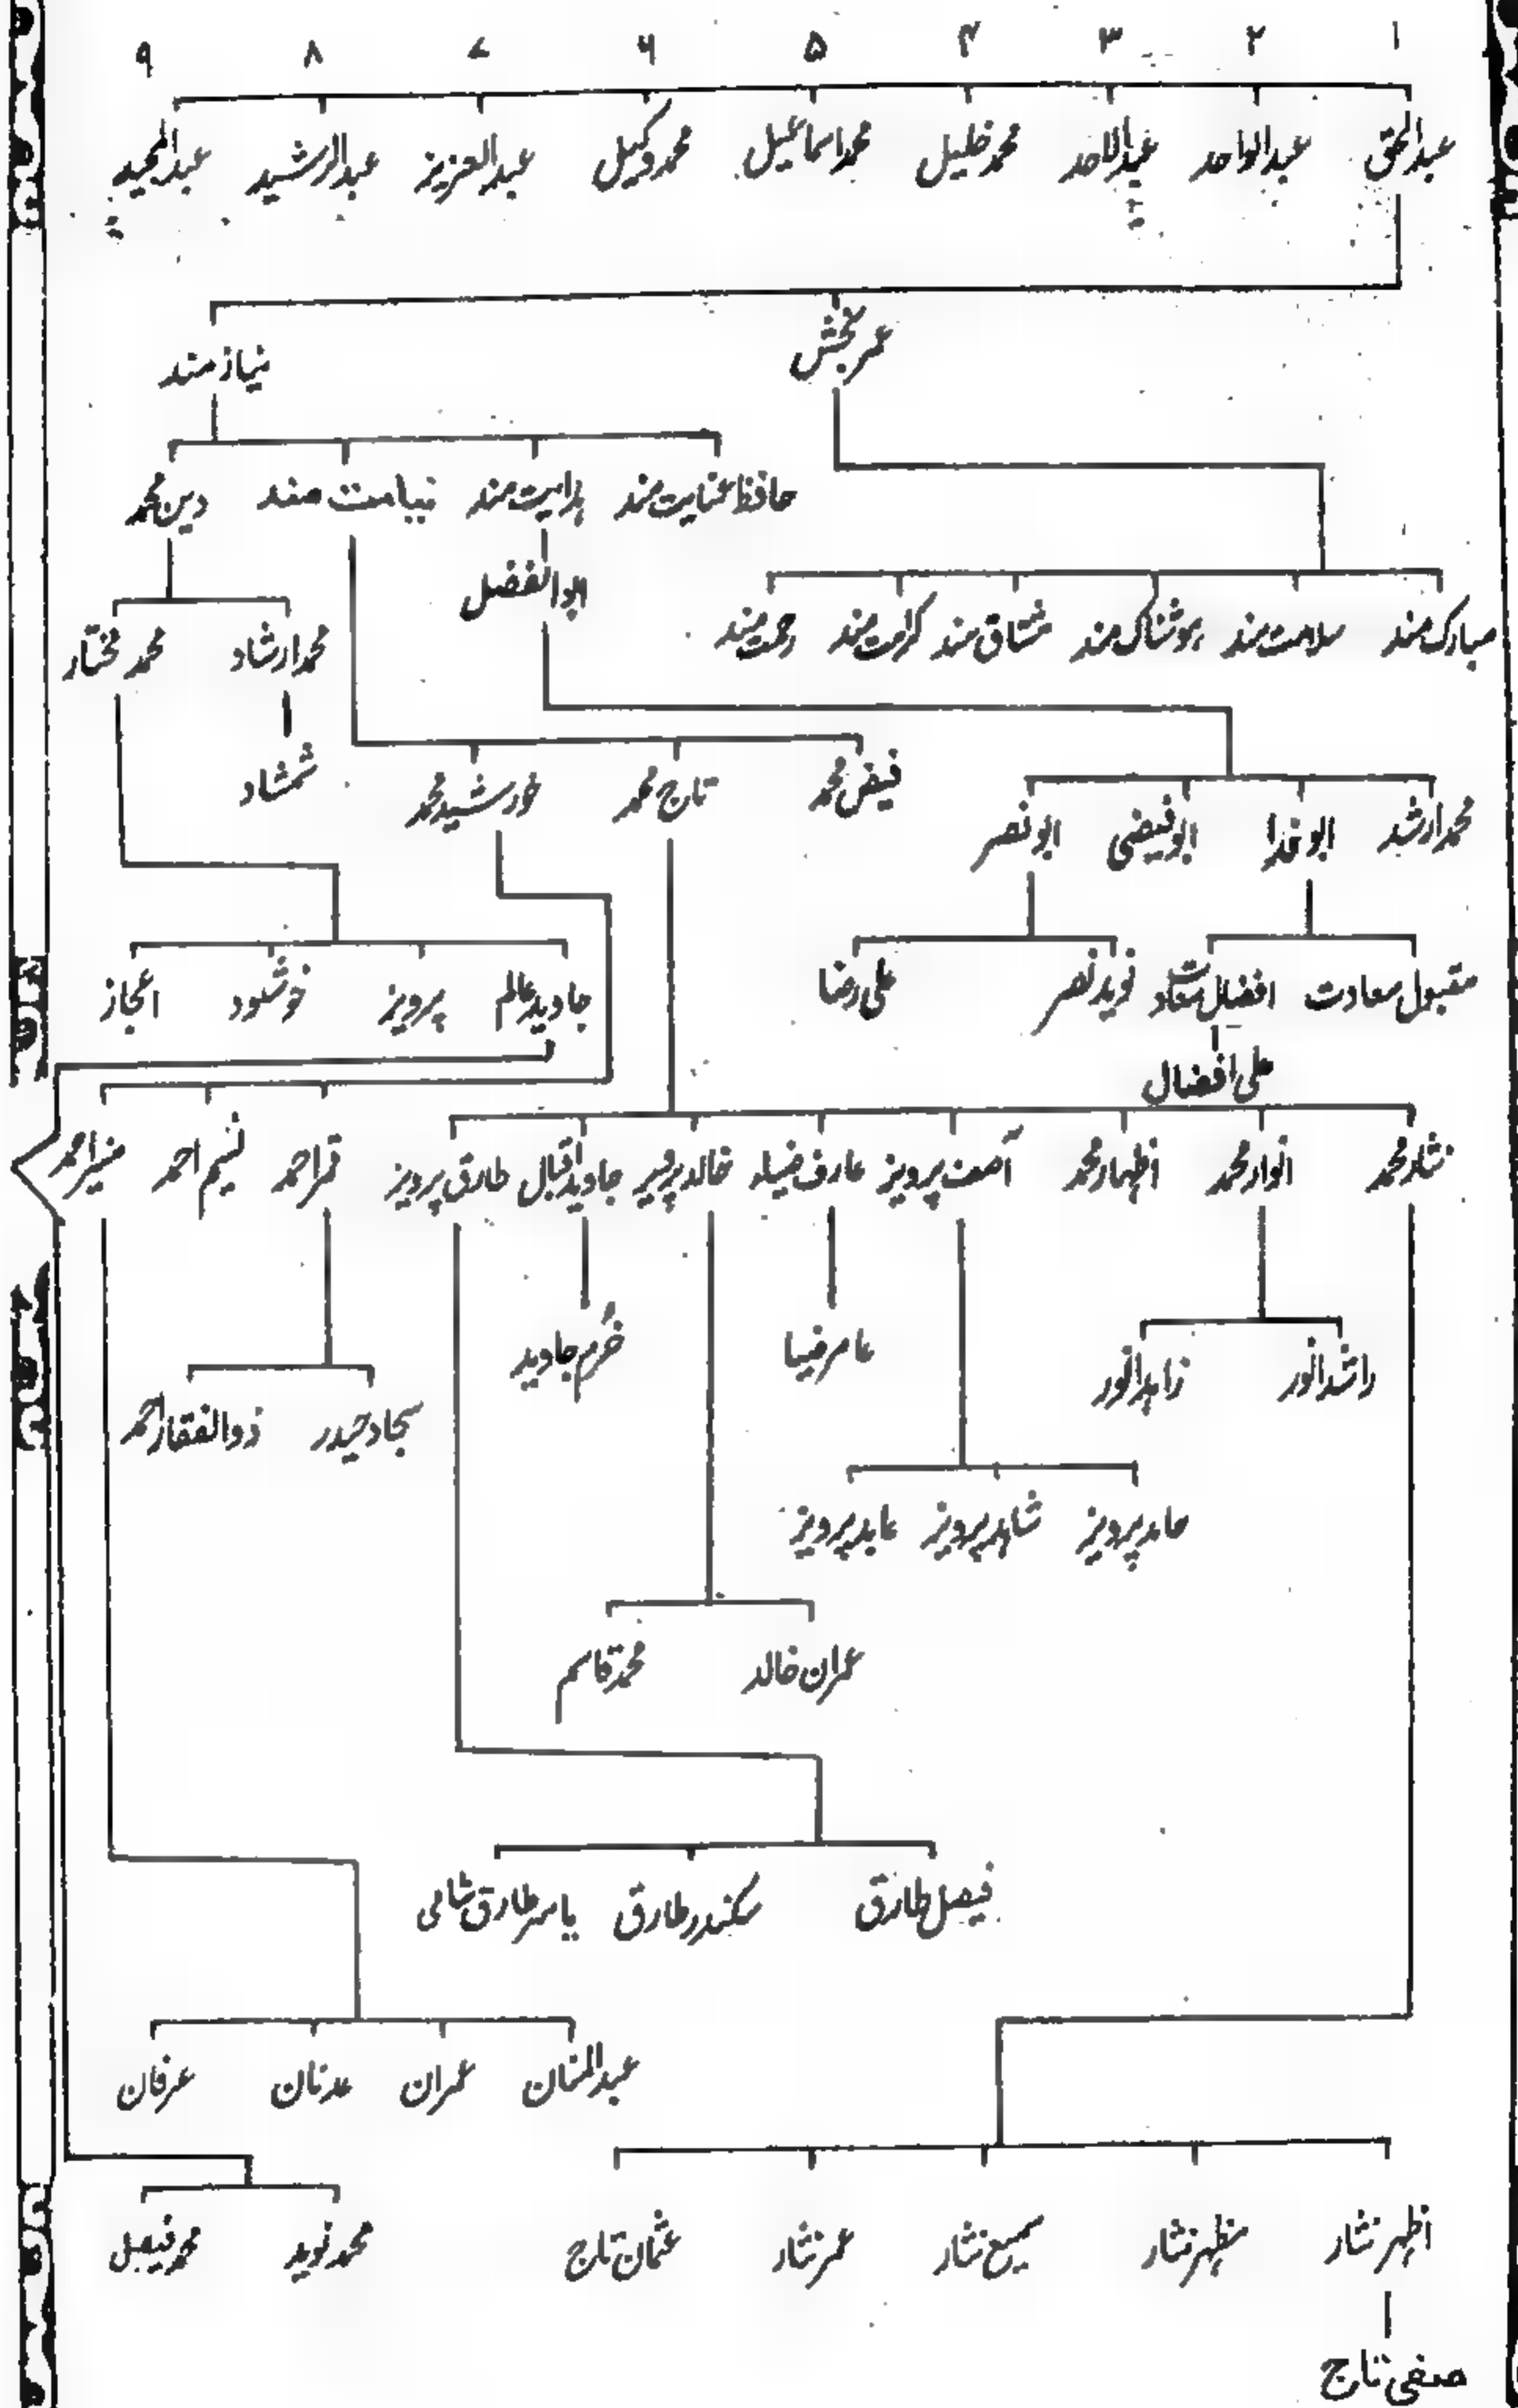 ۱ ۲ ۳ ۴ ۵ ۶ ۷ ۸ ۹
عبدالحق عبدالواحد عبدالاحد محمد خلیل محمد اسماعیل محمد وکیل عبدالعزیز عبدالرشید عبدالمجید
عمر بخش نیاز مند
حافظ عنایت مند ہدایت مند نیامت مند دین محمد
ابوالفضل
مبارک مند سلامت مند ہوشناک مند مشتاق مند کرامت مند رحمت مند
محمد ارشاد محمد مختار
شمشاد
فیض محمد تاج محمد خورشید محمد
محمد ارشد ابو فدا ابو فیضی ابو نصر
مقبول سعادت افضل سعادت نوید نصر علی رضا
جاوید عالم پرویز خوشنود اعجاز
علی افضال
نثار محمد انوار محمد اظہار محمد آصف پرویز عارف ضیاء خالد پرویز جاوید اقبال طارق پرویز قمر احمد نسیم احمد منیر احمد
راشد انور زاہد انور عامر ضیا خرم جاوید
سجاد حیدر ذوالفقار احمد
حامد پرویز شاہد پرویز عابد پرویز
عمران خالد محمد قاسم
فیصل طارق سکندر طارق یاسر طارق شالی
عبدالمنان عمران عدنان عرفان
اظہر نثار مظہر نثار سمیع نثار عمر نثار عثمان تاج محمد نوید محمد فیصل
صفی تاج